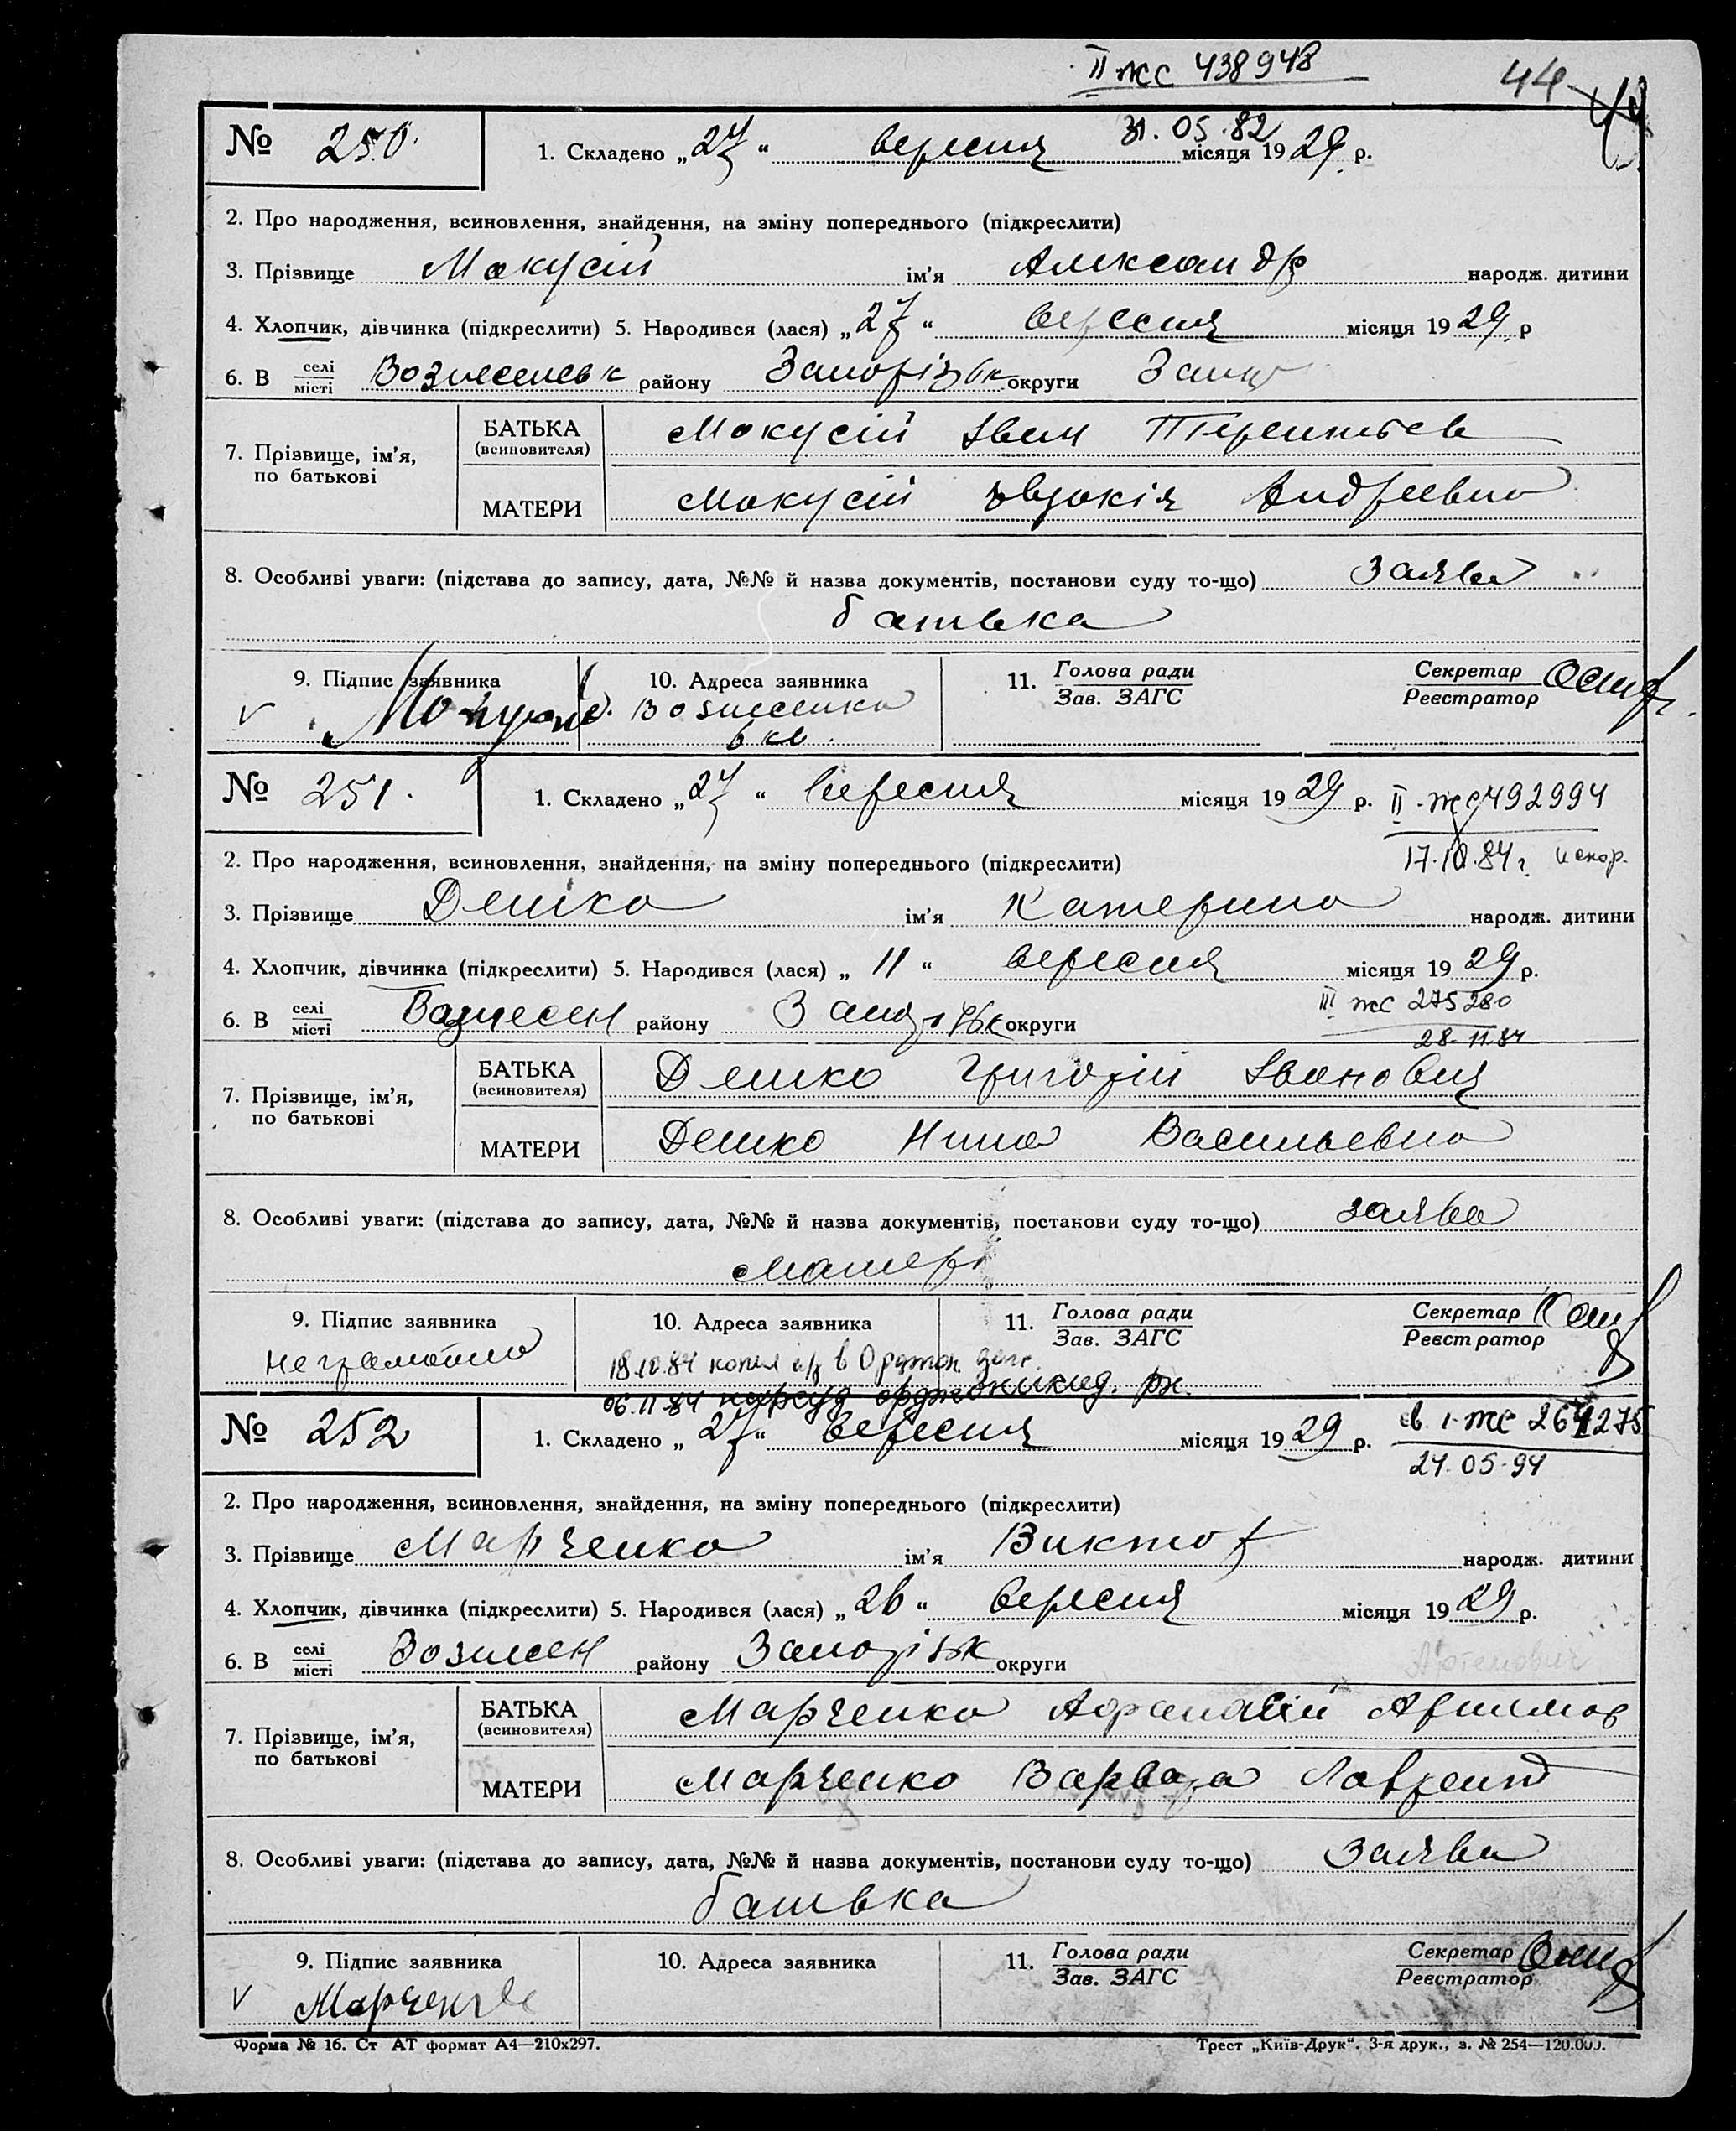 II жс 438948
44
31.05.82
№ 250. 1. Складено „27“ вересня місяця 1929 р.
2. Про народження, всиновлення, знайдення, на зміну попереднього (підкреслити)
3. Прізвище Мокусій ім’я Александр народж. дитини
4. Хлопчик, дівчинка (підкреслити) 5. Народився (лася) „27“ вересня місяця 1929 р
6. В селі/місті Вознесенськ району Запорізьк округи Запор
7. Прізвище, ім’я, по батькові
БАТЬКА (всиновителя) Мокусій Іван Терентьев
МАТЕРИ Мокусій Андреевна
8. Особливі уваги: (підстава до запису, дата, №№ й назва документів, постанови суду то-що) заява
батька
9. Підпис заявника 10. Адреса заявника 11. Голова ради/Зав. ЗАГС Секретар/Реєстратор
Вознесенка
6 кв.
№ 251. 1. Складено „27“ вересня місяця 1929 р. II-жс 492994
17.10.84 г. испр.
2. Про народження, всиновлення, знайдення, на зміну попереднього (підкреслити)
3. Прізвище Дешко ім’я Катерина народж. дитини
4. Хлопчик, дівчинка (підкреслити) 5. Народився (лася) „11“ вересня місяця 1929 р.
III жс 275280
6. В селі/місті Вознесен району Запорізьк округи
28.11.84
7. Прізвище, ім’я, по батькові
БАТЬКА (всиновителя) Дешко Григорій Іванович
МАТЕРИ Дешко Нина Васильевна
8. Особливі уваги: (підстава до запису, дата, №№ й назва документів, постанови суду то-що) заява
матері
9. Підпис заявника 10. Адреса заявника 11. Голова ради/Зав. ЗАГС Секретар/Реєстратор
неграмотна 18.10.84 копия а/з в
06.11.84 нарсуд орджоникид. рн.
№ 252 1. Складено „27“ вересня місяця 1929 р. св. I-жс 264275
24.05.94
2. Про народження, всиновлення, знайдення, на зміну попереднього (підкреслити)
3. Прізвище Марченко ім’я Виктор народж. дитини
4. Хлопчик, дівчинка (підкреслити) 5. Народився (лася) „26“ вересня місяця 1929 р.
6. В селі/місті Вознесен району Запорізьк округи
Артемович
7. Прізвище, ім’я, по батькові
БАТЬКА (всиновителя) Марченко Афанасій
МАТЕРИ Марченко Варвара Лаврент
8. Особливі уваги: (підстава до запису, дата, №№ й назва документів, постанови суду то-що) Заява
батька
9. Підпис заявника 10. Адреса заявника 11. Голова ради/Зав. ЗАГС Секретар/Реєстратор
V Марченко
Форма № 16. Ст АТ формат А4—210х297. Трест „Київ-Друк“. 3-я друк., з. № 254—120.000.